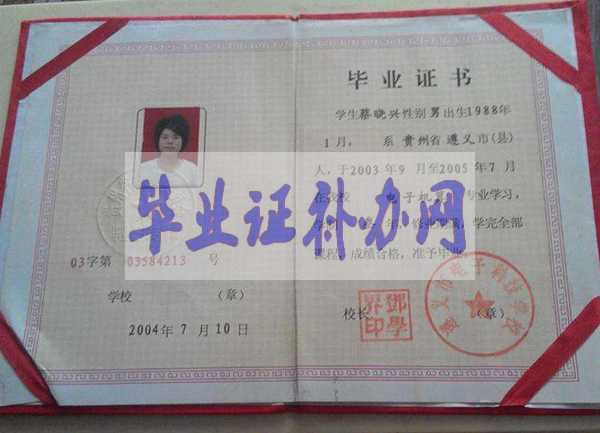 毕业证书
学生蔡晓兴性别男出生1988年
1月, 系 贵州省遵义市(县)
人,于2003年9月至2005年7月
在我校 电子机 专业学习,
学完全部
课程,成绩合格,准予毕业。
毕业证补办网
03字第 03584213 号
学校 (章)
2004年7月10日
校长 (章)
邓學昇印
遵义市电子科技学校